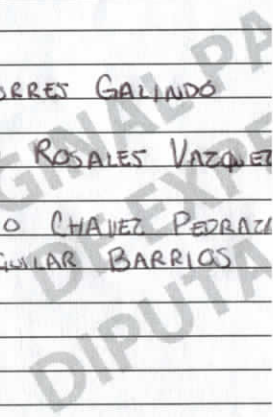 ORRES GALINDO
ROSALES VAZQUEZ
O CHAVEZ PEDRAZA
GUILAR BARRIOS
ORIGINAL PA
DE EXPE
DIPUTA